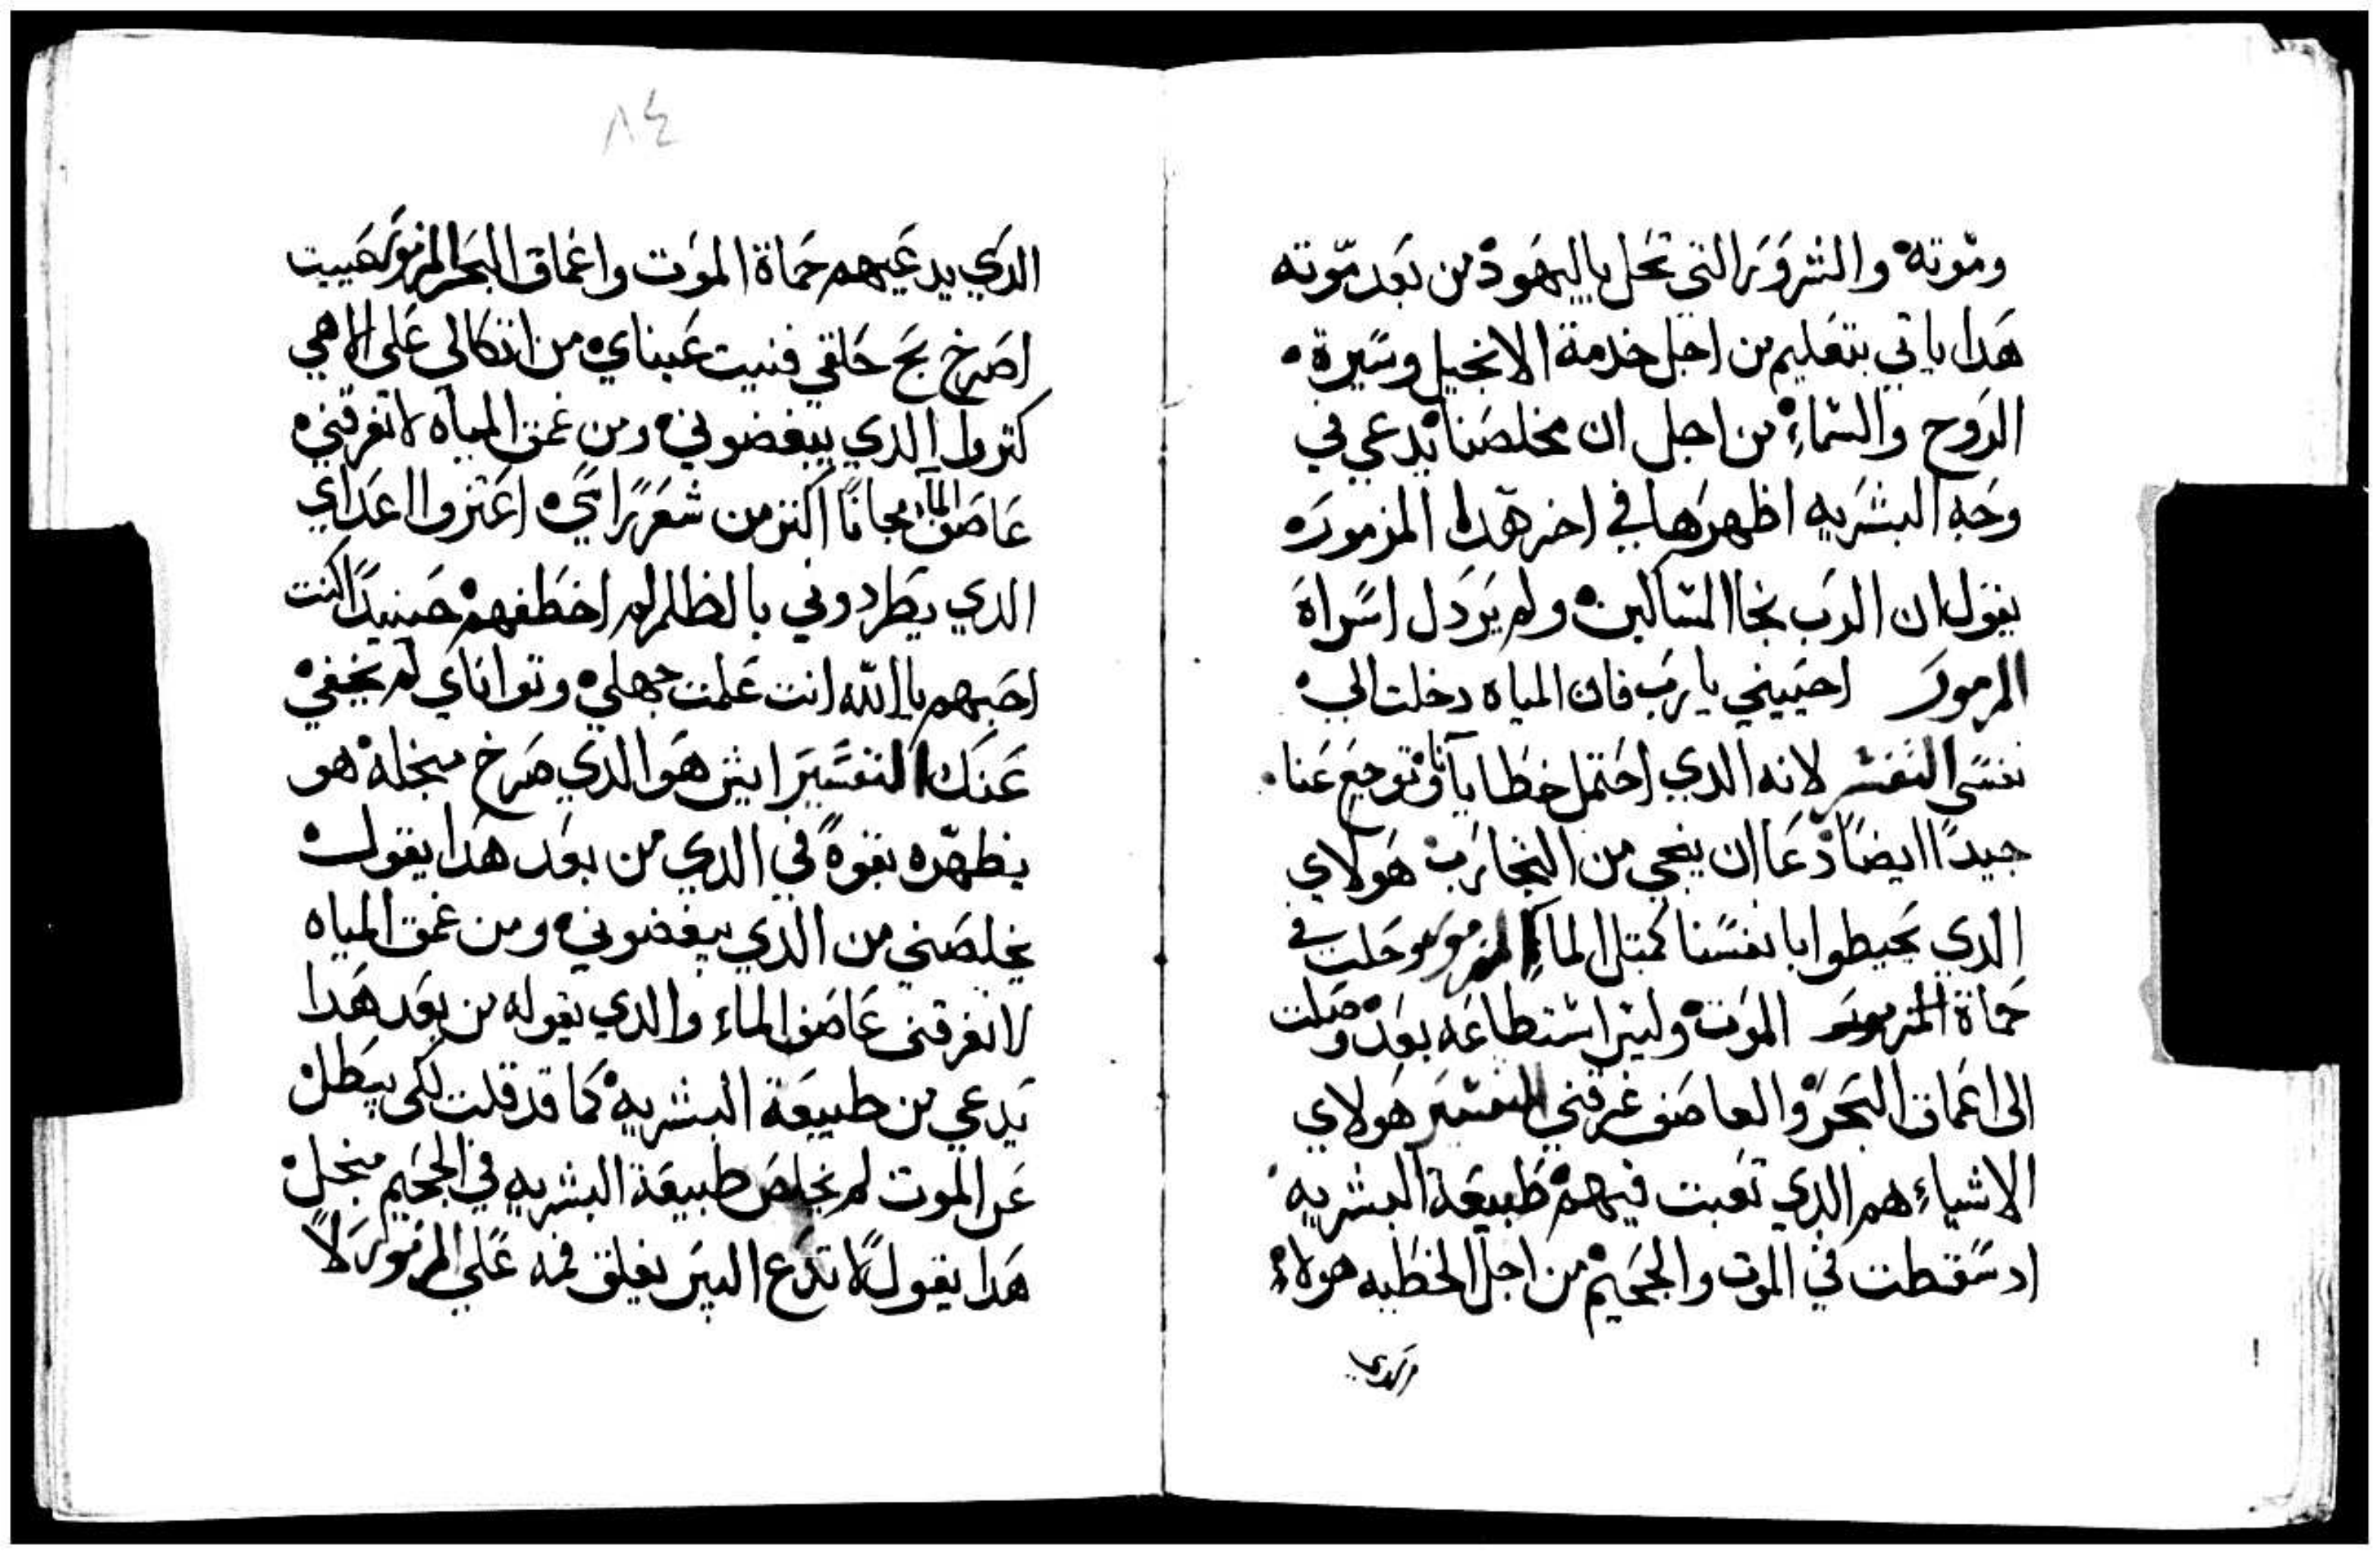 وموته والشرور التي تحل باليهود من بعد موته
هدا ياتي بتعليم من اجل خدمة الانجيل وسيرة
الروح والسماء من اجل ان مخلصنا يدعي في
وجه البشريه اظهرها في اخر هدا المزمور
يقول ان الرب نجا السالين ولم يردل اسراه
المزمور احييني يا رب فان المياه دخلت الي
نفسي التفسير لانه الدي احتمل خطايانا وتوجع عنا
جيدا ايضا دعا ان ينجي من التجارب هولاي
الدي يحيطوا بانفسنا كمتل الما المزمور وحلت في
حماة المزمور الموت وليس استطاعه بعد وصلت
الى اعماق البحر والعاصف غرقني التفسير هولاي
الاشياء هم الدي تعبت فيهم طبيعة البشريه
اد سقطت في الموت والجحيم من اجل الخطيه هولاء
الدي
٨٤
الدي يدعيهم حماة الموت واعماق البحر المزمور عييت
اصرخ بح حلقي فنيت عيناي من اتكالي علي الاهي
كتروا الدي يبغضوني ومن غمق المياه لا تغرقني
عاصف الماء مجانا اكتر من شعر راسي اعتزوا اعداي
الدي يطردوني بالظلم لم اخطفهم حينيدا كنت
اجبهم يا الله انت علمت جهلي وتواناي لم تخفي
عنك التفسير ايش هو الدي صرخ منجله هو
يظهره بقوة في الدي من بعد هدا يقول
يخلصني من الدي يبغضوني ومن غمق المياه
لا تغرقني عاصف الماء والدي يقوله من بعد هدا
يدعي من طبيعة البشريه كما قد قلت لكي يبطل
عن الموت لم يخلص طبيعة البشريه في الجحيم منجل
هدا يقول لا تدع البير يغلق فمه علي المزمور لا